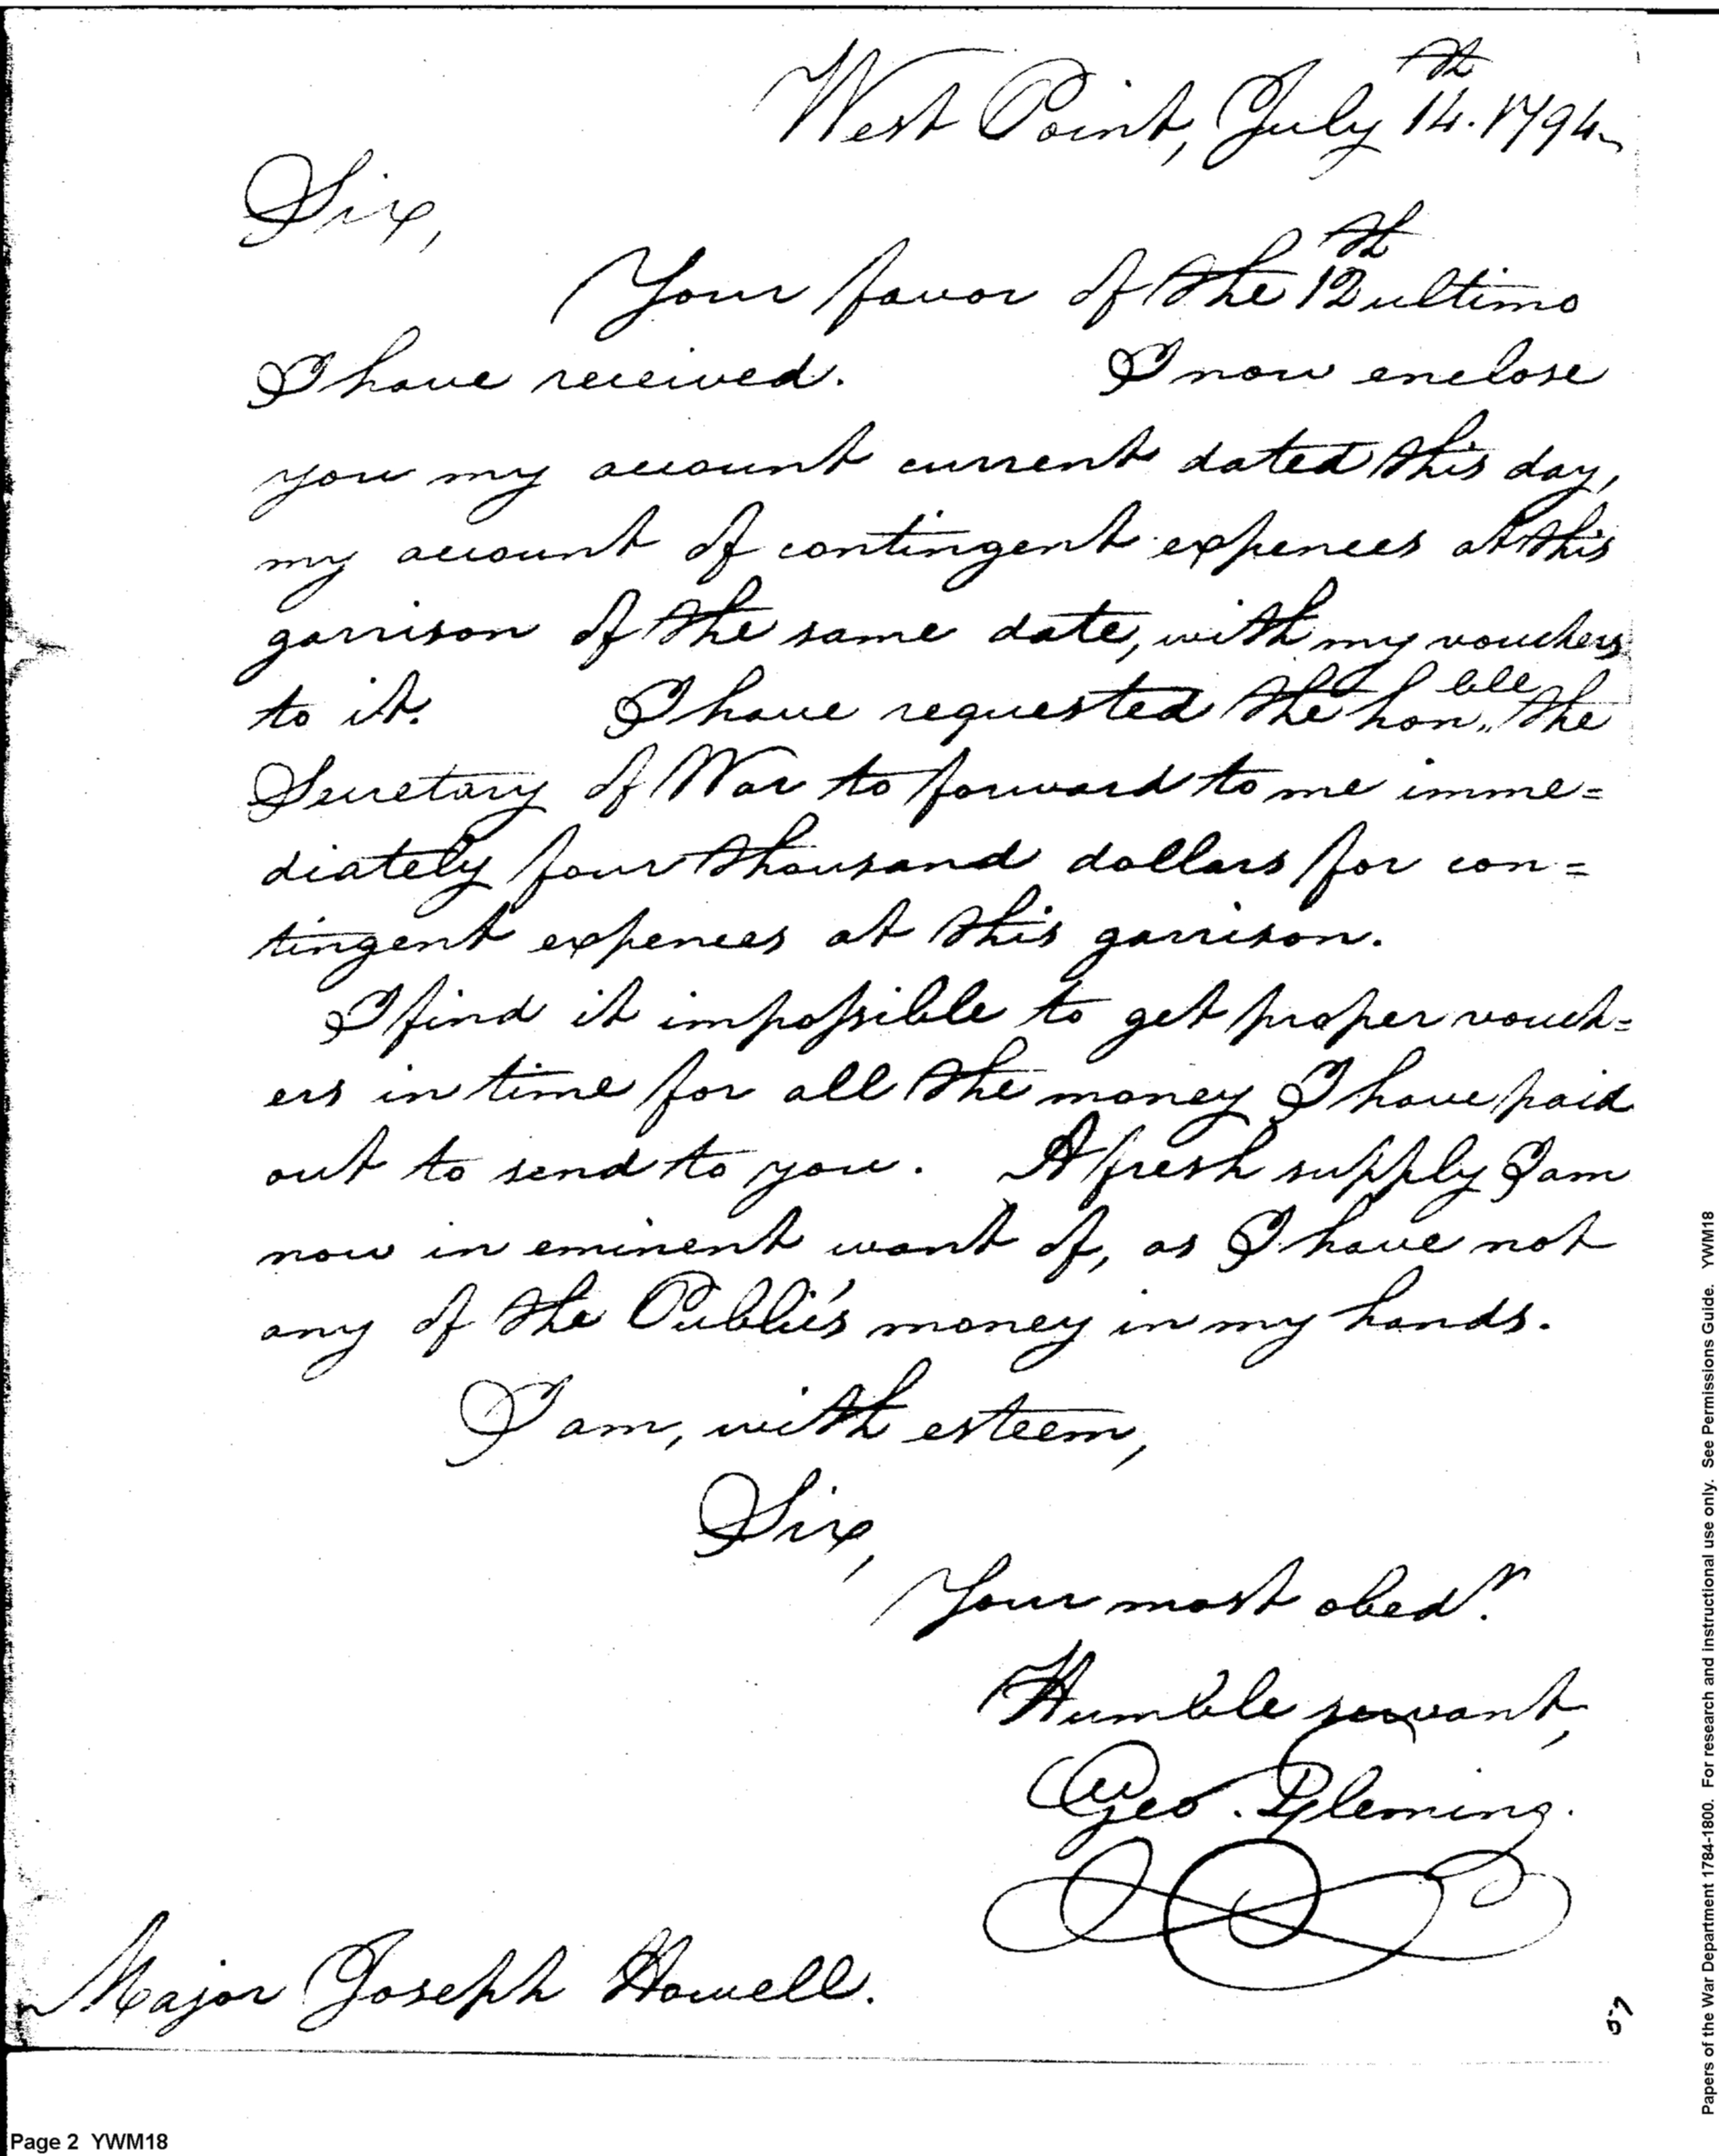 West Point, July 14.th 1794.
Sir,
Your favor of the 12th ultimo
I have received. I now enclose
you my account current dated this day,
my account of contingent expences at this
garrison of the same date, with my vouchers
to it. I have requested the hon,,ble the
Secretary of War to forward to me imme=
diately four thousand dollars for con=
tingent expences at this garrison.
I find it impossible to get proper vouch=
ers in time for all the money I have paid
out to send to you. A fresh supply I am
now in eminent want of, as I have not
any of the Public's money in my hands.
I am, with esteem,
Sir,
Your most obed.t
Humble servant,
Geo. Fleming.
Major Joseph Howell.
57
Page 2 YWM18
Papers of the War Department 1784-1800. For research and instructional use only. See Permissions Guide. YWM18